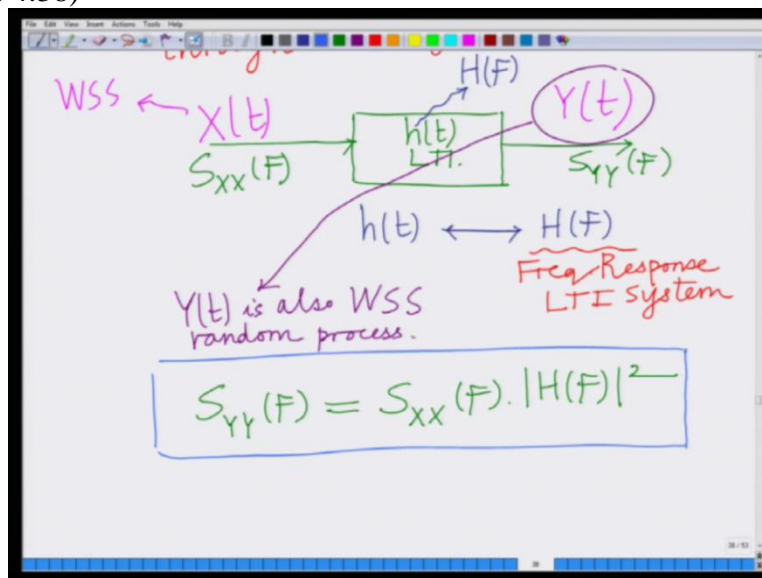 File Edit View Insert Actions Tools Help
H(F)
WSS
X(t)
h(t)
LTI.
Y(t)
S_XX(F)
S_YY(F)
h(t) ⟷ H(F)
Freq Response
LTI System
Y(t) is also WSS
random process.
S_YY(F) = S_XX(F). |H(F)|²
38 / 53
38